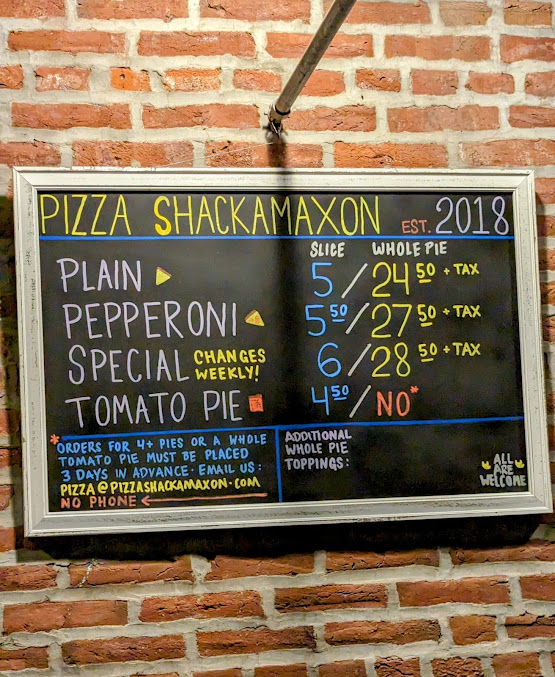 PIZZA SHACKAMAXON EST. 2018
SLICE WHOLE PIE
PLAIN 5/24 50 + TAX
PEPPERONI 5 50/27 50 + TAX
SPECIAL CHANGES WEEKLY! 6/28 50 + TAX
TOMATO PIE 4 50/NO*
*ORDERS FOR 4+ PIES OR A WHOLE
TOMATO PIE MUST BE PLACED
3 DAYS IN ADVANCE· EMAIL US:
PIZZA@PIZZASHACKAMAXON.COM
NO PHONE ←
ADDITIONAL
WHOLE PIE
TOPPINGS:
ALL
ARE
WELCOME